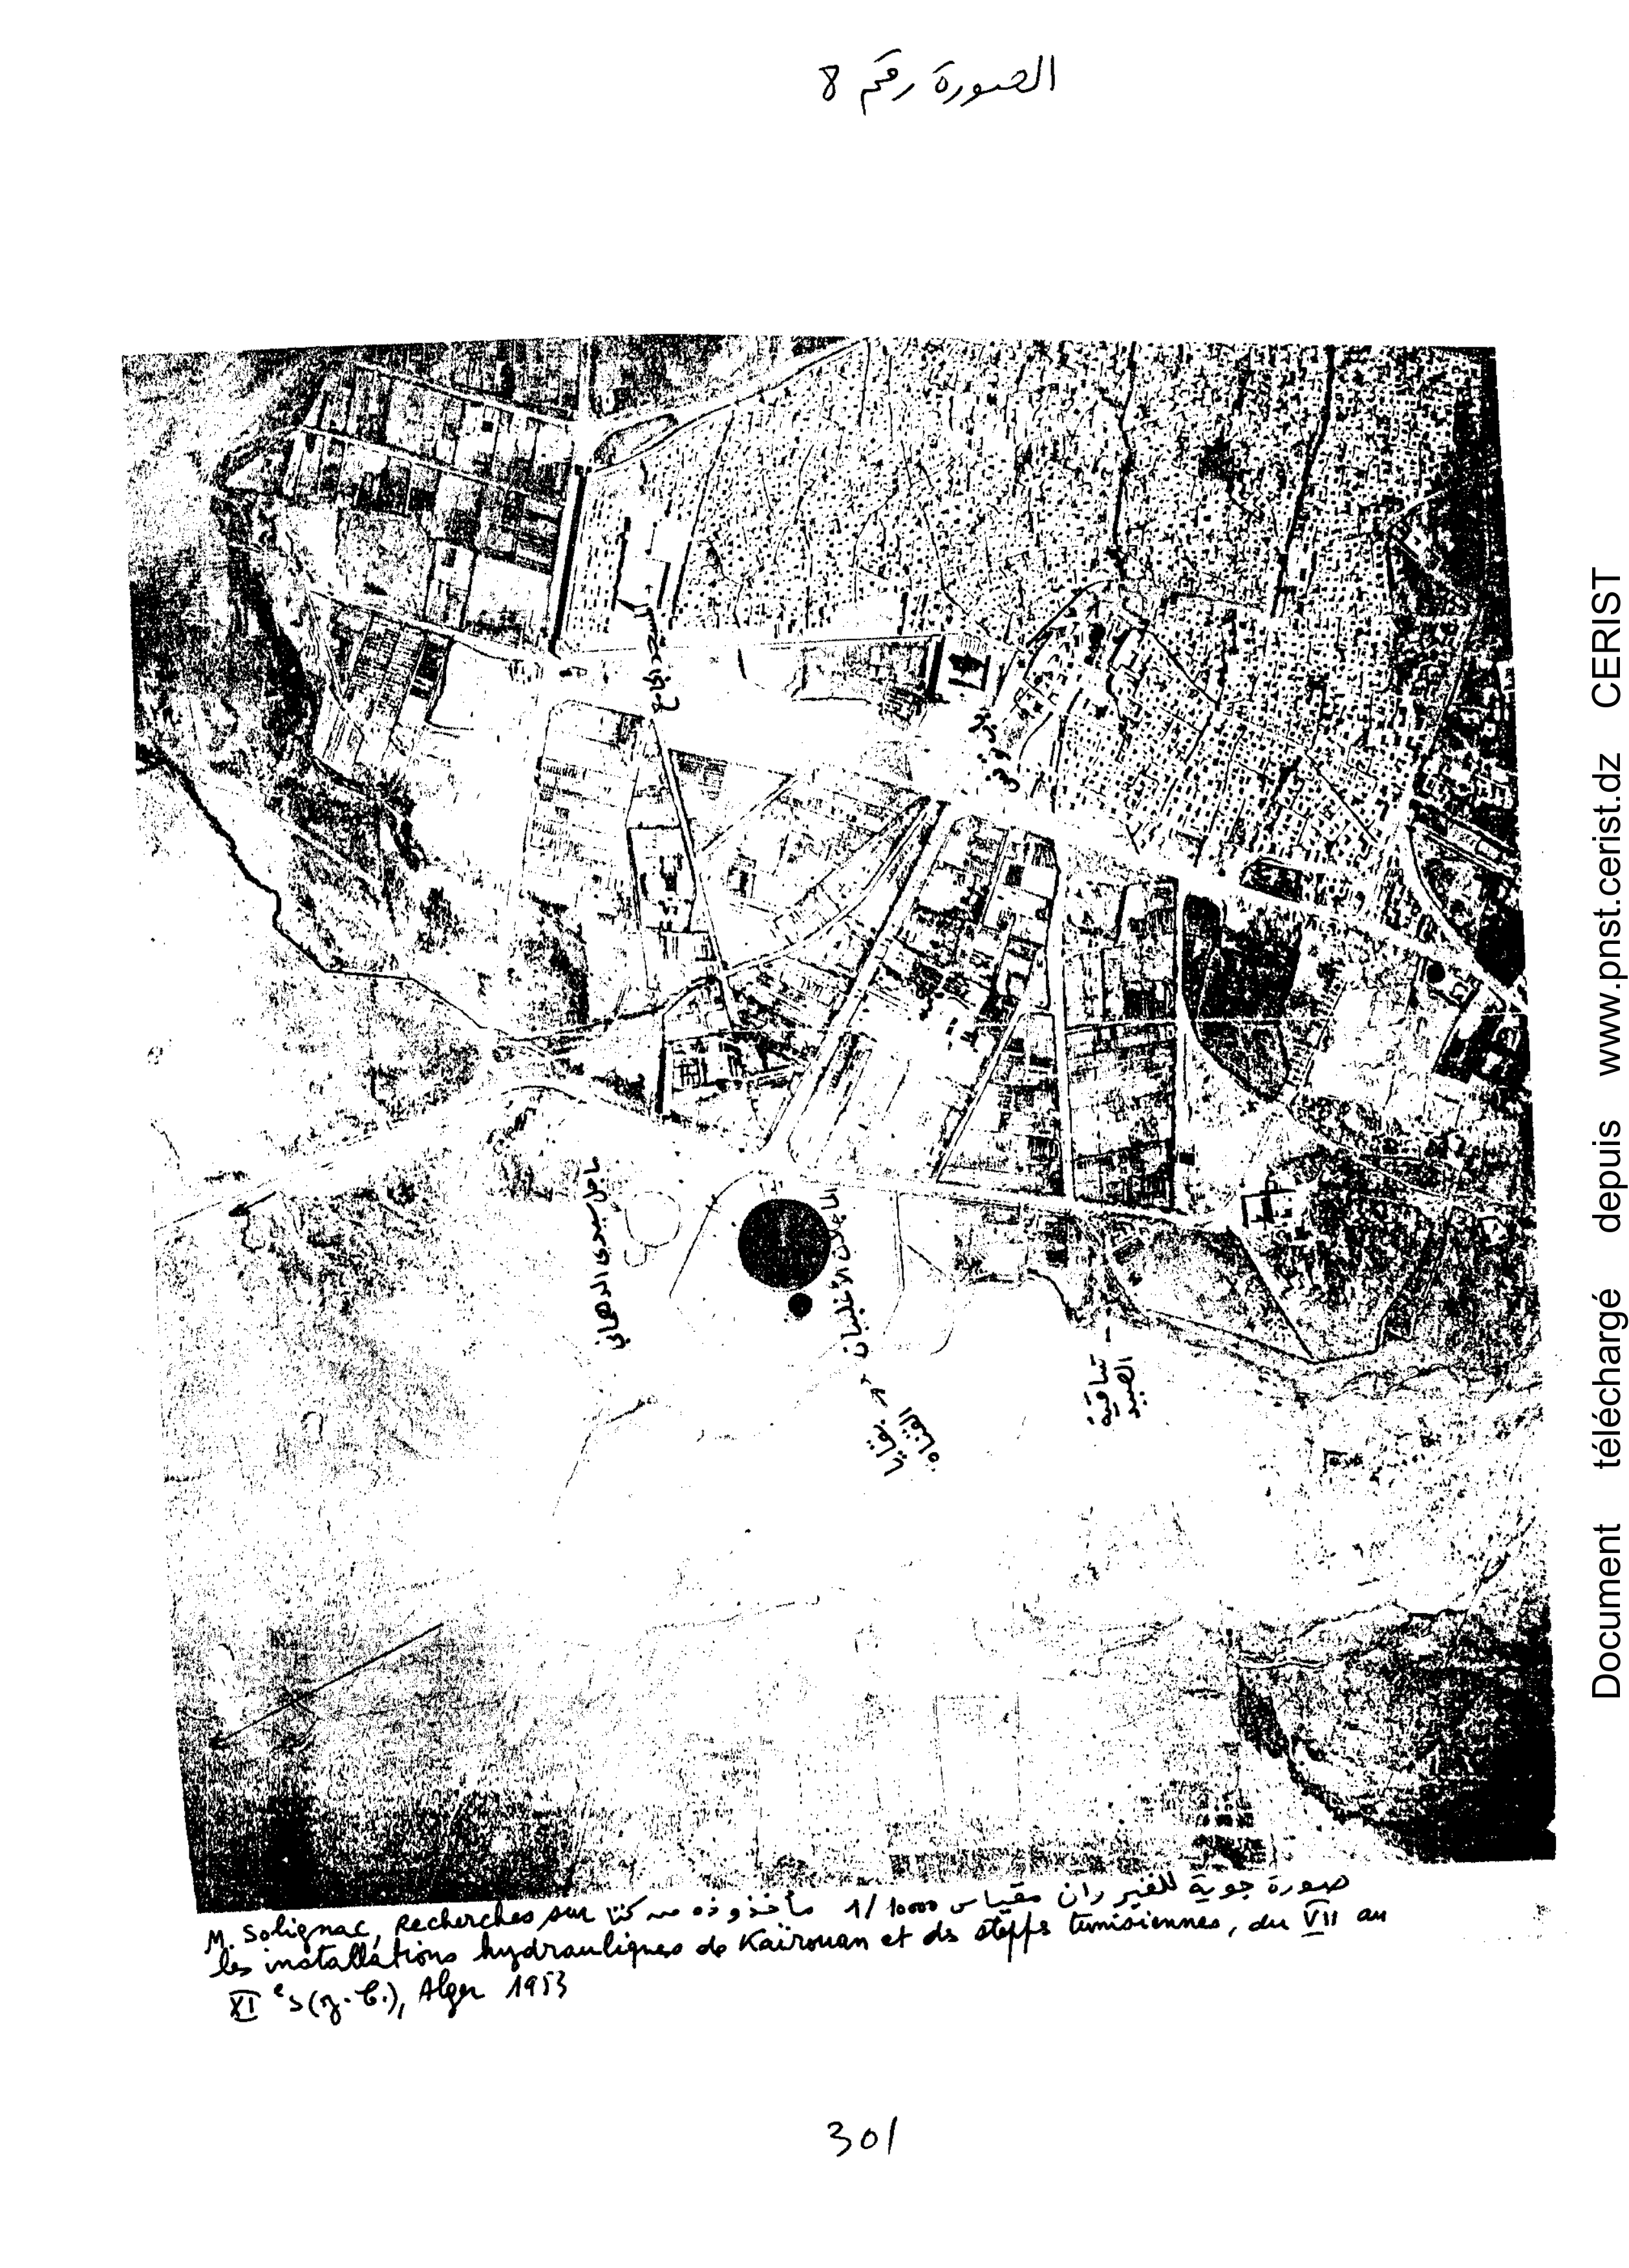 الصورة رقم 8
المسجد الجامع
ماجل سيدي الدهماني
الماجلان الأغلبيان
ساقية
صورة جوية للقيروان مقياس 1/10000 مأخذوذة من كتا
M. Solignac, Recherches sur
les installations hydrauliques de Kaïrouan et ds stepps tunisiennes, du VII au
XI e s (J.C.), Alger 1953
301
Document téléchargé depuis www.pnst.cerist.dz CERIST